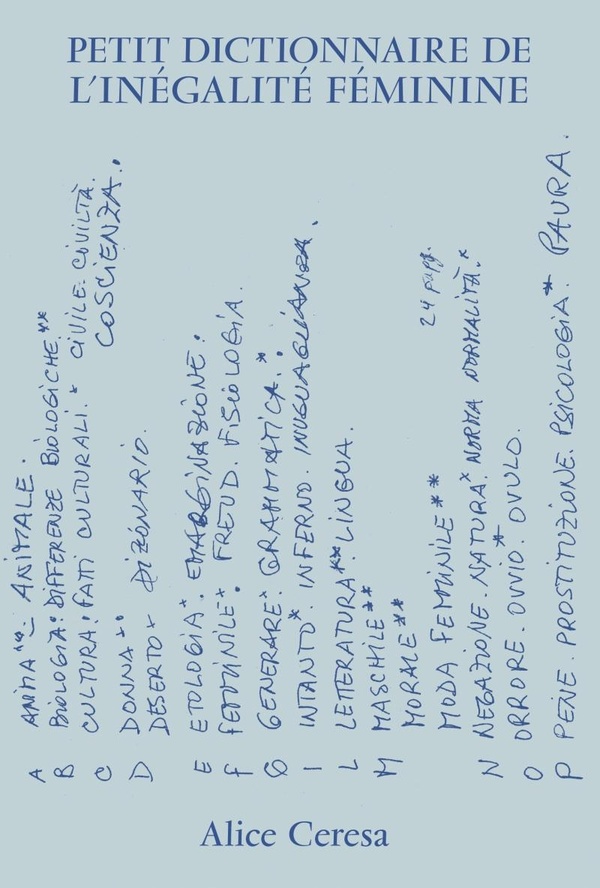 PETIT DICTIONNAIRE DE
L'INÉGALITÉ FÉMININE
A ANIMA**. ANIMALE.
B BIOLOGIA. DIFFERENZE BIOLOGICHE**
C CULTURA. FATTI CULTURALI.* CIVILE. CIVILTÀ.
COSCIENZA.
D DONNA**
DESERTO* DIZIONARIO.
E ETOLOGIA*. EMARGINAZIONE.
F FEMMINILE*. FREUD. FISIOLOGIA.
G GENERARE* GRAMMATICA.*
I INTANTO* INFERNO. INUGUAGLIANZA.
L LETTERATURA** LINGUA.
M MASCHILE**
MORALE**
MODA FEMMINILE** 24 pagg.
N NEGAZIONE. NATURA* NORMA NORMALITÀ.*
O ORRORE. OVVIO.* OVULO.
P PENE. PROSTITUZIONE. PSICOLOGIA.* PAURA.
Alice Ceresa